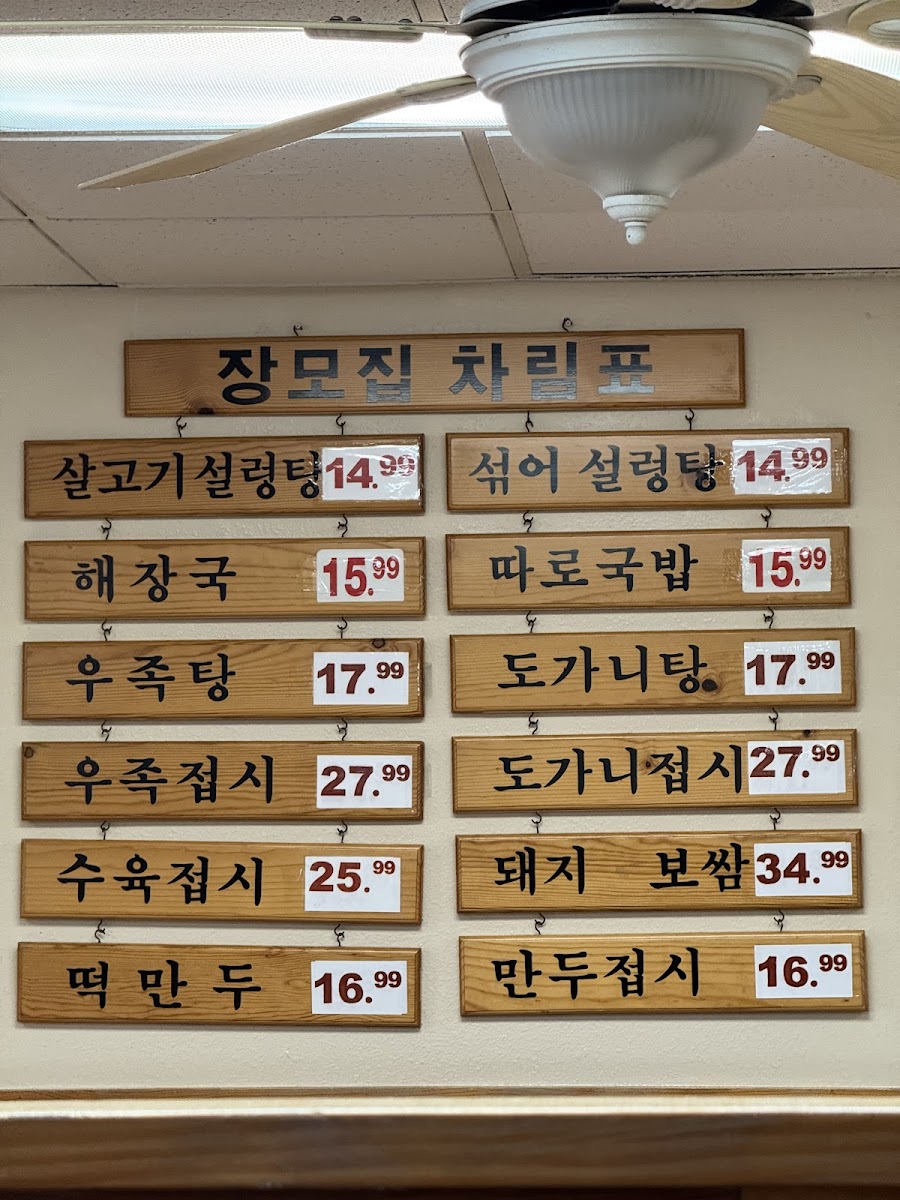 장모집 차림표
살고기설렁탕 14.99
섞어 설렁탕 14.99
해장국 15.99
따로국밥 15.99
우족탕 17.99
도가니탕 17.99
우족접시 27.99
도가니접시 27.99
수육접시 25.99
돼지 보쌈 34.99
떡만두 16.99
만두접시 16.99